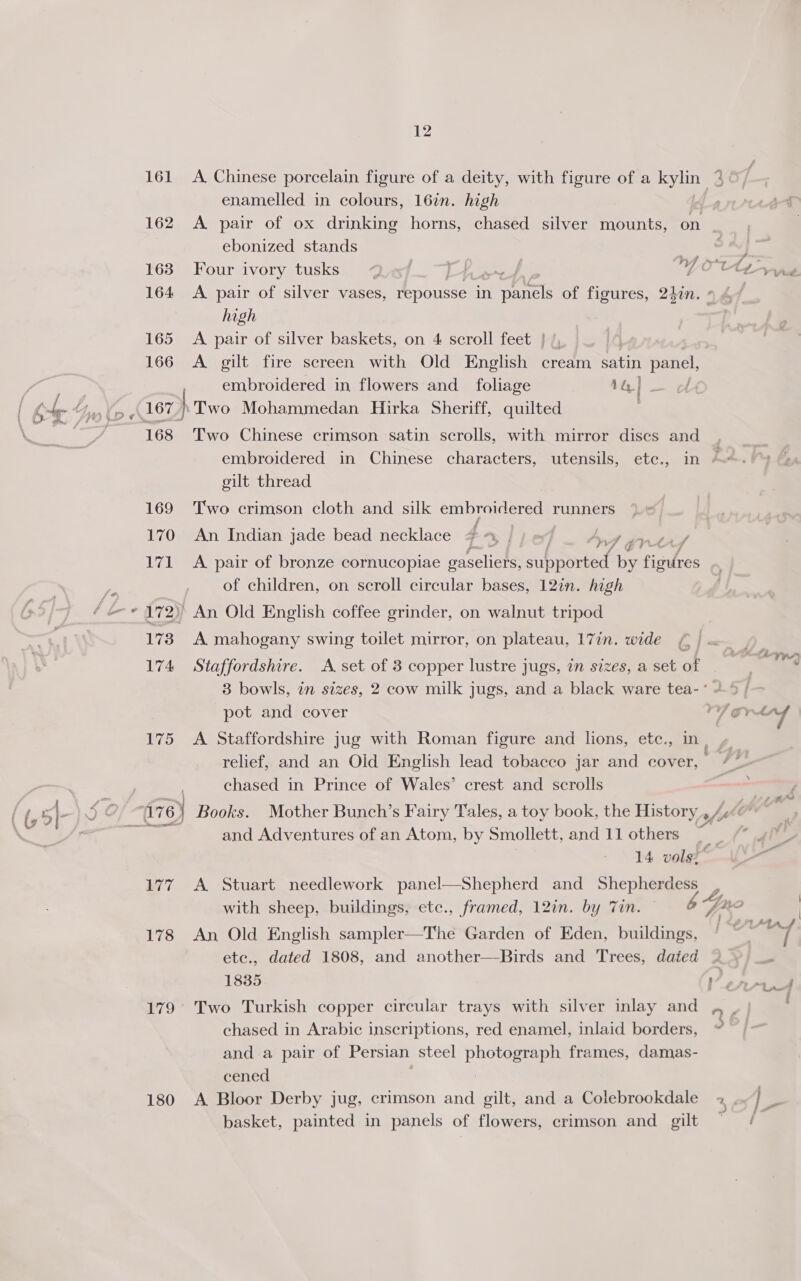 12
161 A Chinese porcelain figure of a deity, with figure of a kylin
enamelled in colours, 16in. high
162 A pair of ox drinking horns, chased silver mounts, on
ebonized stands
163 Four ivory tusks
164 A pair of silver vases, repousse in panels of figures, 2½in.
high
165 A pair of silver baskets, on 4 scroll feet
166 A gilt fire screen with Old English cream satin panel,
embroidered in flowers and foliage
167 Two Mohammedan Hirka Sheriff, quilted
168 Two Chinese crimson satin scrolls, with mirror discs and
embroidered in Chinese characters, utensils, etc., in
gilt thread
169 Two crimson cloth and silk embroidered runners
170 An Indian jade bead necklace
171 A pair of bronze cornucopiae gaseliers, supported by figures
of children, on scroll circular bases, 12in. high
172 An Old English coffee grinder, on walnut tripod
173 A mahogany swing toilet mirror, on plateau, 17in. wide
174 Staffordshire. A set of 3 copper lustre jugs, in sizes, a set of
3 bowls, in sizes, 2 cow milk jugs, and a black ware tea-
pot and cover
175 A Staffordshire jug with Roman figure and lions, etc., in
relief, and an Old English lead tobacco jar and cover,
chased in Prince of Wales' crest and scrolls
176 Books. Mother Bunch's Fairy Tales, a toy book, the History
and Adventures of an Atom, by Smollett, and 11 others
14 vols.
177 A Stuart needlework panel—Shepherd and Shepherdess
with sheep, buildings, etc., framed, 12in. by 7in.
178 An Old English sampler—The Garden of Eden, buildings,
etc., dated 1808, and another—Birds and Trees, dated
1835
179 Two Turkish copper circular trays with silver inlay and
chased in Arabic inscriptions, red enamel, inlaid borders,
and a pair of Persian steel photograph frames, damas-
cened
180 A Bloor Derby jug, crimson and gilt, and a Colebrookdale
basket, painted in panels of flowers, crimson and gilt